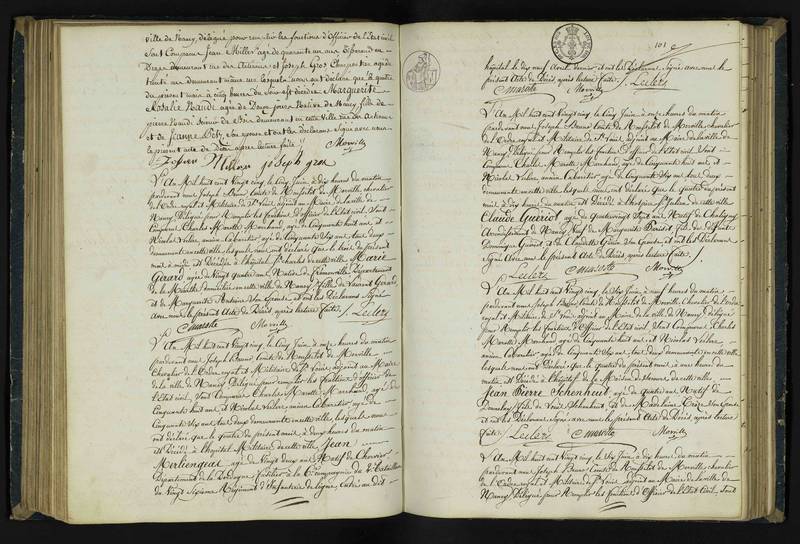 ville de Nancy, délégué pour remplir les fonctions d'Officier de l'état civil
Sont Comparus Jean Miller agé de quarante un ans
demeurant rue des Artisans et Joseph Gros Charpentier agé de
trente ans demeurant même rue lesquels nous ont déclaré que le quatre
du présent mois à cinq heures du Soir est décédée Marguerite
Rosalie Naudé agée de Douze jours Native de Nancy, fille de
pierre Naudé Scieur de Bois demeurant en cette Ville rue des Artisans
et de Jeanne son épouse et ont les déclarans Signé avec nous
le présent acte de Décès après lecture faite
joseph gros
L'An Mil huit cent Vingt cinq, le Cinq Juin à dix heures du matin
pardevant nous Joseph Bruno Comte de Monfstot de Morville, chevalier
de l'Ordre royal et Militaire de St Louis, adjoint au Maire de la ville de
Nancy Délégué pour Remplir les fonctions d'officier de l'Etat civil, Sont
Comparus Charles Marotte Marchand, agé de Cinquante huit ans et
Nicolas Voilier, ancien Cabaretier, agé de Cinquante Sept ans tous deux
demeurants en cette ville, lesquels nous ont déclaré que le trois du présent
mois à midi est Décédée à l'hôpital St Charles de cette ville Marie
Girard, agée de Vingt quatre ans Native de Département
de la Meurthe, domiciliée en cette ville de Nancy, fille de Laurent Girard,
et de Marguerite Antoine Son Epouse et ont les Déclarans Signé
avec nous le présent Acte de Décès, après lecture faite.
L'An Mil huit cent Vingt cinq, le Cinq Juin à onze heures du matin
pardevant nous Joseph Bruno Comte de Monfstot de Morville
Chevalier de l'Ordre royal et Militaire de St Louis, adjoint au Maire
de la ville de Nancy, Délégué pour remplir les fonctions d'officier de
l'Etat civil, Sont Comparus Charles Marotte Marchand, agé de
Cinquante huit ans et Nicolas Voilier, ancien Cabaretier agé de
Cinquante Sept ans tous Deux demeurants en cette ville, lesquels nous
ont déclaré que le quatre du présent mois, à deux heures du matin
est Décédé à l'hôpital Militaire de cette ville Jean
Merliengeas agé de Vingt deux ans Natif de
Département de la Dordogne, fusilier à la Compagnie du 2e Bataillon
du Vingt Sixième Régiment d'Infanterie de ligne, Entré au dit
101
hôpital le dix neuf Avril dernier et ont les Déclarans Signé avec nous le
présent Acte de Décès, après lecture faite.
L'An Mil huit cent Vingt cinq, le Cinq Juin, à onze heures du matin
pardevant nous Joseph Bruno Comte de Monfstot de Morville chevalier
de l'Ordre royal et Militaire de St Louis, adjoint au Maire de la ville de
Nancy, Délégué pour Remplir les fonctions d'officier de l'Etat civil Sont
Comparus Charles Marotte Marchand, agé de Cinquante huit ans, et
Nicolas Voilier, ancien Cabaretier agé de Cinquante Sept ans, tous deux
demeurants en cette ville lesquels nous ont déclaré que le quatre du présent
mois, à dix heures du matin est Décédé à l'hospice St Julien de cette ville
Claude Gueriot, agé de quatrevingt Sept ans Natif de
Arrondissement de Nancy, Veuf de Marguerite fils de défunts
Dominique Gueriot, et de Claudette Son Epouse et ont les Déclarans
Signé avec nous le présent Acte de Décès, après lecture faite.
L'An Mil huit cent Vingt cinq, le Sept Juin, à neuf heures du matin
pardevant nous Joseph Bruno Comte de Monfstot de Morville, Chevalier de l'Ordre
royal et Militaire de St Louis, adjoint au Maire de la ville de Nancy, Délégué
pour Remplir les fonctions d'Officier de l'Etat civil. Sont Comparus Charles
Marotte Marchand agé de Cinquante huit ans, et Nicolas Voilier,
ancien Cabaretier agé de Cinquante Sept ans, tous deux demeurants en cette ville
lesquels nous ont Déclaré que le Six du présent mois, à une heure du
matin est Décédé à l'hospice de la Maison de Secours de cette ville
Jean Pierre Schenheut agé de quatre ans Natif de
fils de et de Madelaine Son Epouse
et ont les Déclarans, Signé avec nous, le présent Acte de Décès, après lecture
faite.
L'An Mil huit cent Vingt cinq le Sept Juin, à dix heures du matin
pardevant nous Joseph Bruno Comte de Monfstot de Morville chevalier
de l'Ordre royal et Militaire de St Louis, adjoint au Maire de la ville de
Nancy Délégué pour Remplir les fonctions d'Officier de l'Etat civil, Sont